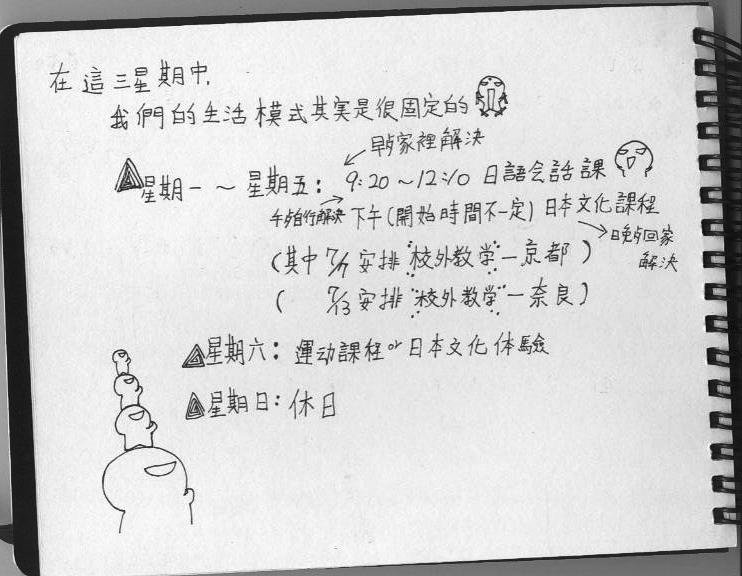 在這三星期中,
我們的生活模式其實是很固定的
早歺家裡解決
星期一～星期五: 9:20～12:10 日語会話課
午歺自行解決 下午(開始時間不一定)日本文化課程
晚歺回家
解決
(其中 7/7 安排 校外教学—京都)
( 7/13 安排 校外教学—奈良)
星期六: 運动課程or日本文化体驗
星期日: 休日